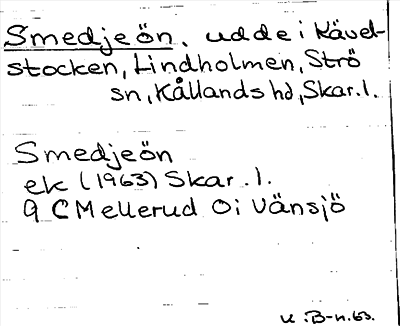 Smedjeön, udde i Kävel-
stocken, Lindholmen, Strö
sn, Kållands hd, Skar.l.
Smedjeön
ek (1963) Skar.l.
9 C Mellerud Oi Vänsjö
U.:B-n.63.